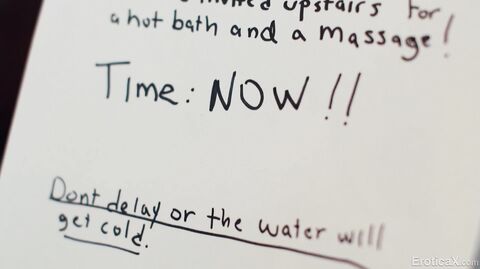 invited upstairs for
a hot bath and a massage!
Time: NOW!!
Dont delay or the water will
get cold.
EroticaX.com